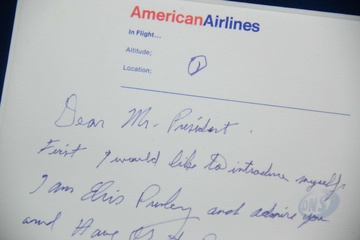 AmericanAirlines
In Flight...
Altitude;
Location;
①
Dear Mr. President.
First I would like to introduce myself.
I am Elvis Presley and admire you
and Have